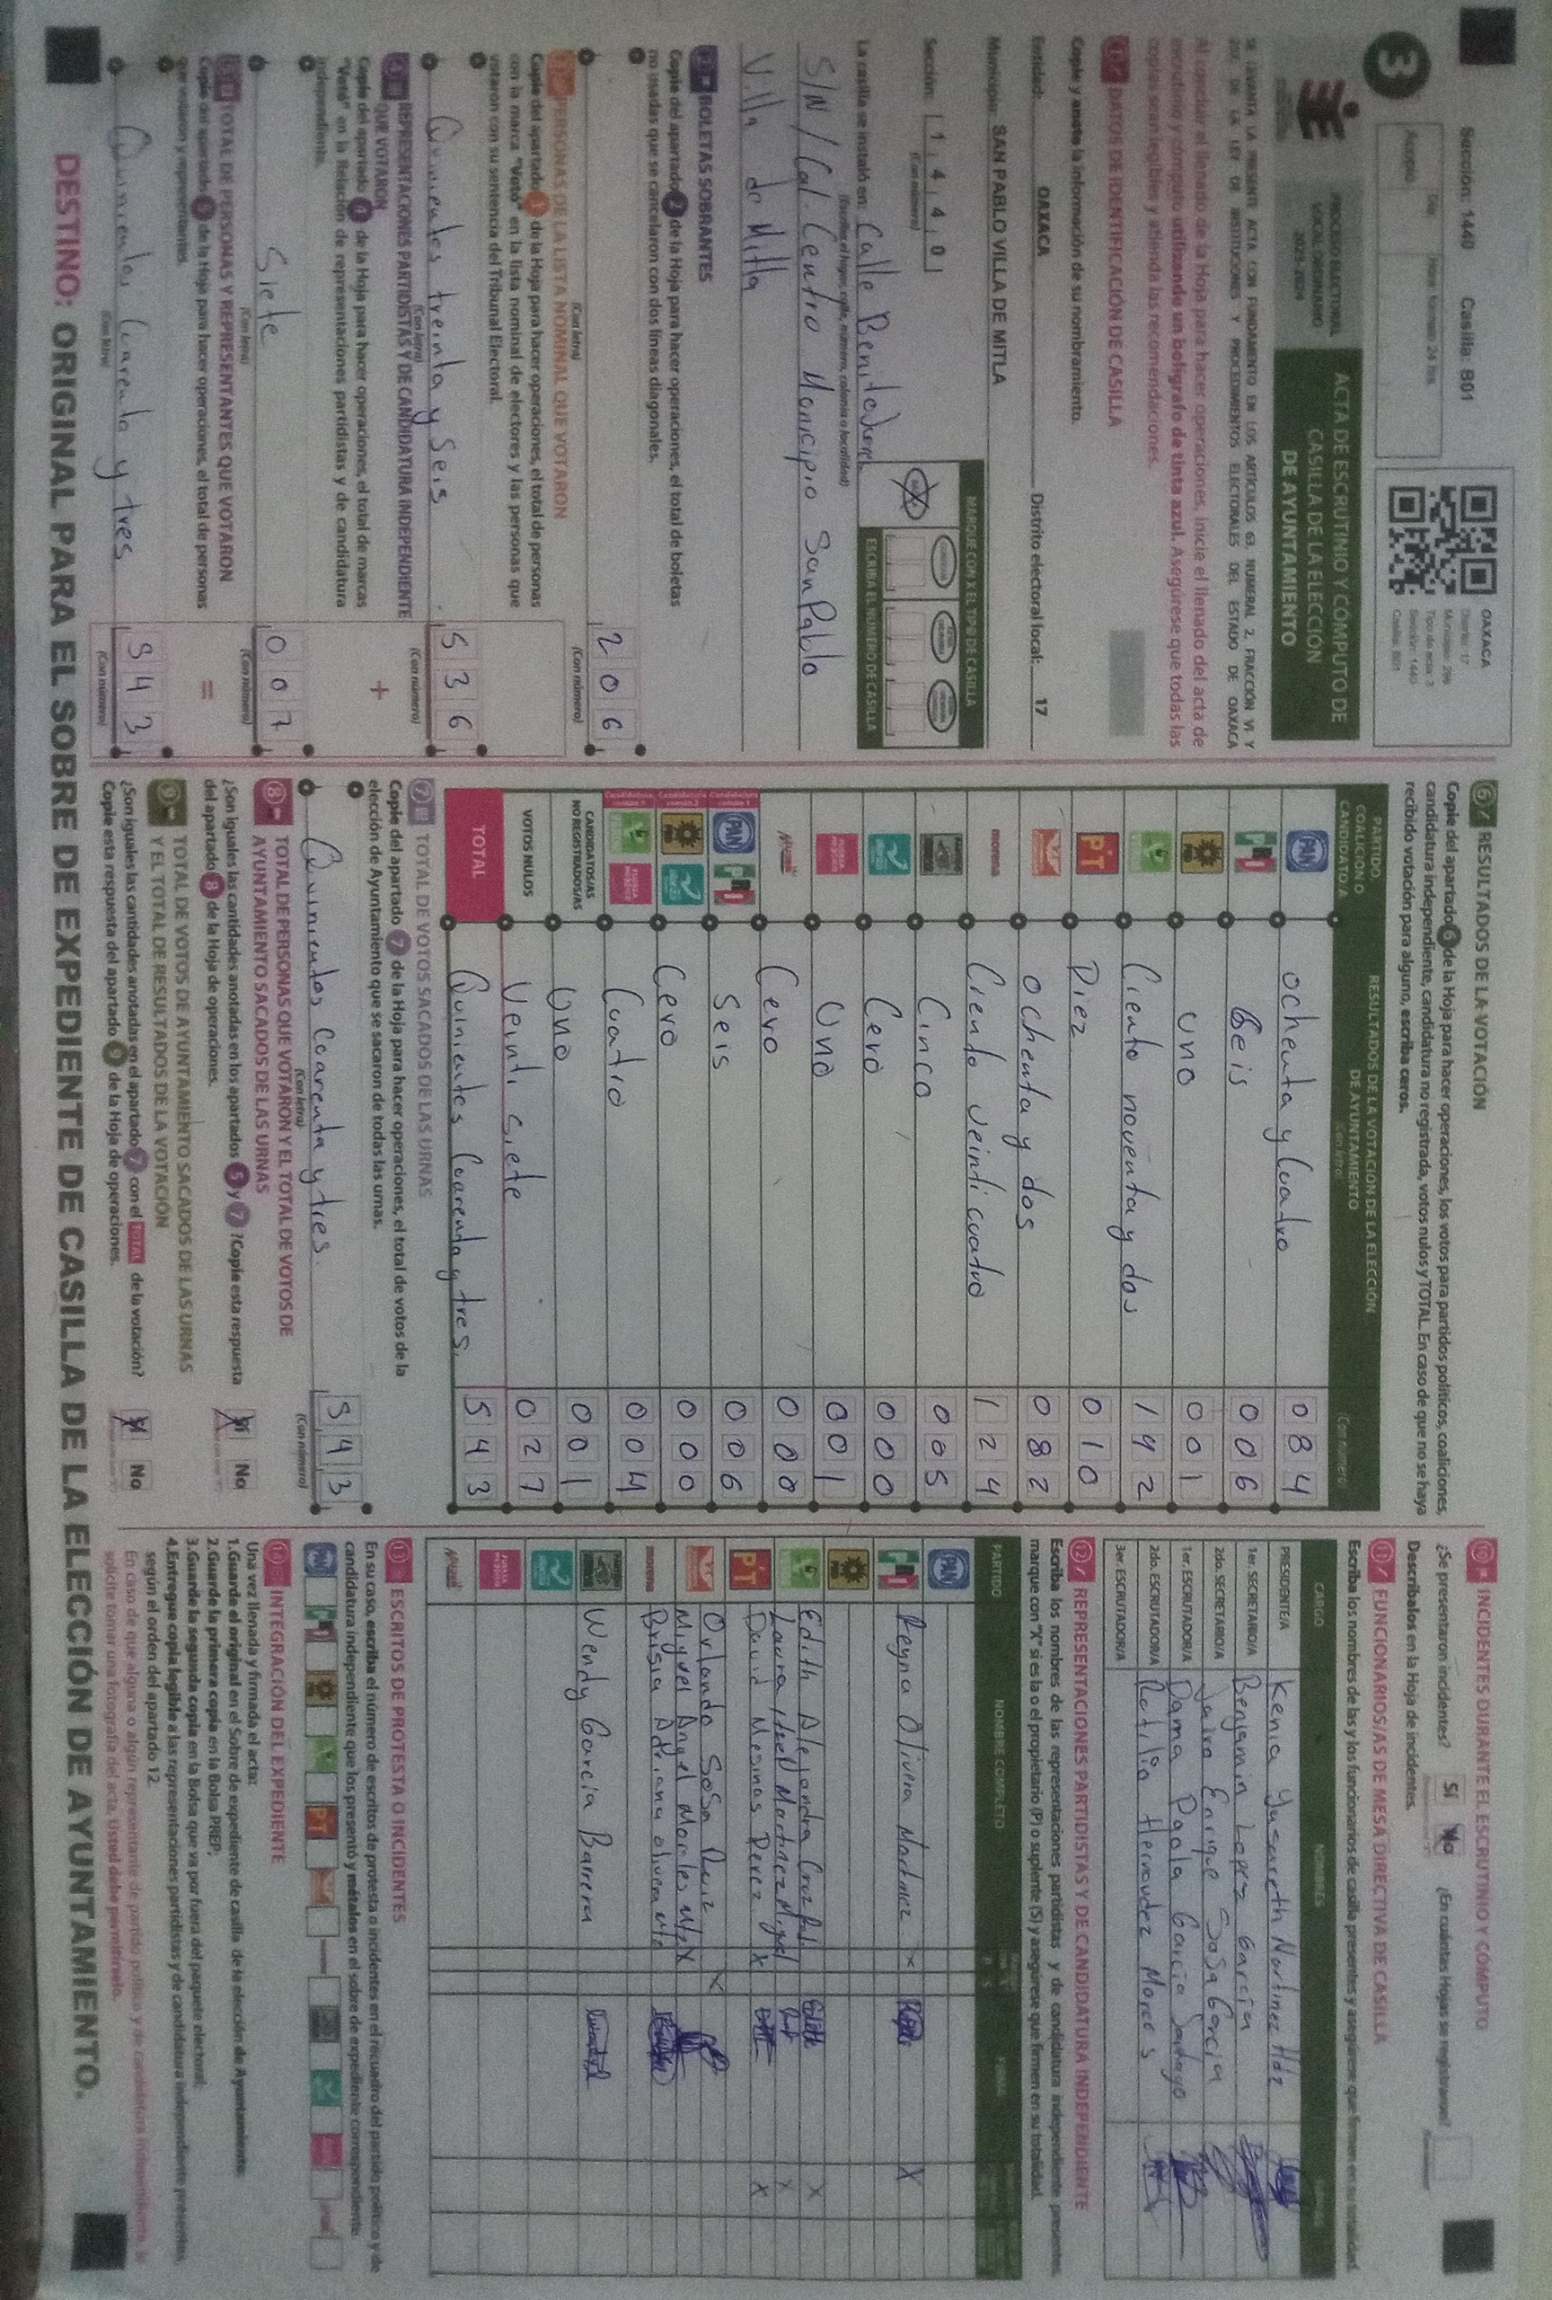 3
Sección: 1440 Casilla: B01
Día: Hora: formato 24 hrs.
Acopio
OAXACA
Distrito: 17
Municipio: 298
Tipo de acta: 3
Sección: 1440
Casilla: B01
PROCESO ELECTORAL
LOCAL ORDINARIO
2023-2024
ACTA DE ESCRUTINIO Y CÓMPUTO DE
CASILLA DE LA ELECCIÓN
DE AYUNTAMIENTO
SE LEVANTA LA PRESENTE ACTA CON FUNDAMENTO EN LOS ARTÍCULOS 63, NUMERAL 2, FRACCIÓN VI Y
DE LA LEY DE INSTITUCIONES Y PROCEDIMIENTOS ELECTORALES DEL ESTADO DE OAXACA
Al concluir el llenado de la Hoja para hacer operaciones, inicie el llenado del acta de
escrutinio y cómputo utilizando un bolígrafo de tinta azul. Asegúrese que todas las
copias sean legibles y atienda las recomendaciones.
1 DATOS DE IDENTIFICACIÓN DE CASILLA
Copie y anote la información de su nombramiento.
Entidad: OAXACA Distrito electoral local: 17
Municipio: SAN PABLO VILLA DE MITLA
Sección: 1 4 4 0
(Con número)
MARQUE CON X EL TIPO DE CASILLA
ESCRIBA EL NÚMERO DE CASILLA
La casilla se instaló en: Calle Benito Juarez
(Escriba el lugar, calle, número, colonia o localidad)
S/N / Col. Centro Municipio San Pablo
Villa de Mitla
2 BOLETAS SOBRANTES
Copie del apartado 2 de la Hoja para hacer operaciones, el total de boletas
no usadas que se cancelaron con dos líneas diagonales.
2 0 6
(Con letra) (Con número)
3 PERSONAS DE LA LISTA NOMINAL QUE VOTARON
Copie del apartado 3 de la Hoja para hacer operaciones, el total de personas
con la marca "Votó" en la lista nominal de electores y las personas que
votaron con su sentencia del Tribunal Electoral.
Quinientos treinta y Seis 5 3 6
(Con letra) (Con número)
4 REPRESENTACIONES PARTIDISTAS Y DE CANDIDATURA INDEPENDIENTE
QUE VOTARON
+
Copie del apartado 4 de la Hoja para hacer operaciones, el total de marcas
"Votó" en la Relación de representaciones partidistas y de candidatura
independiente.
Siete 0 0 7
(Con letra) (Con número)
5 TOTAL DE PERSONAS Y REPRESENTANTES QUE VOTARON
=
Copie del apartado 5 de la Hoja para hacer operaciones, el total de personas
que votaron y representantes.
Quinientos Cuarenta y tres 5 4 3
(Con letra) (Con número)
6 RESULTADOS DE LA VOTACIÓN
Copie del apartado 6 de la Hoja para hacer operaciones, los votos para partidos políticos, coaliciones,
candidatura independiente, candidatura no registrada, votos nulos y TOTAL. En caso de que no se haya
recibido votación para alguno, escriba ceros.
PARTIDO, COALICIÓN O CANDIDATO/A
RESULTADOS DE LA VOTACIÓN DE LA ELECCIÓN DE AYUNTAMIENTO
(Con letra) (Con número)
PAN ochenta y Cuatro 0 8 4
PRI Seis 0 0 6
PRD uno 0 0 1
Ciento noventa y dos 1 9 2
PT Diez 0 1 0
ochenta y dos 0 8 2
morena Ciento veinticuatro 1 2 4
Cinco 0 0 5
Cero 0 0 0
FUERZA MÉXICO Uno 0 0 1
Cero 0 0 0
Candidatura común 1 PAN PRI Seis 0 0 6
Candidatura común 2 PRD Cero 0 0 0
FUERZA MÉXICO Cuatro 0 0 4
CANDIDATOS/AS NO REGISTRADOS/AS Uno 0 0 1
VOTOS NULOS Veinti siete 0 2 7
TOTAL Quinientos Cuarenta y tres. 5 4 3
7 TOTAL DE VOTOS SACADOS DE LAS URNAS
Copie del apartado 7 de la Hoja para hacer operaciones, el total de votos de la
elección de Ayuntamiento que se sacaron de todas las urnas.
Quinientos Coarenta y tres. 5 4 3
(Con letra) (Con número)
8 TOTAL DE PERSONAS QUE VOTARON Y EL TOTAL DE VOTOS DE
AYUNTAMIENTO SACADOS DE LAS URNAS
¿Son iguales las cantidades anotadas en los apartados 5 y 7? Copie esta respuesta
del apartado 8 de la Hoja de operaciones. Sí No
9 TOTAL DE VOTOS DE AYUNTAMIENTO SACADOS DE LAS URNAS
Y EL TOTAL DE RESULTADOS DE LA VOTACIÓN
¿Son iguales las cantidades anotadas en el apartado 7 con el TOTAL de la votación?
Copie esta respuesta del apartado 9 de la Hoja de operaciones. Sí No
10 INCIDENTES DURANTE EL ESCRUTINIO Y CÓMPUTO
¿Se presentaron incidentes? Sí No ¿En cuántas Hojas se registraron?
Descríbalos en la Hoja de incidentes.
11 FUNCIONARIOS/AS DE MESA DIRECTIVA DE CASILLA
Escriba los nombres de las y los funcionarios de casilla presentes y asegúrese que firmen en su totalidad.
CARGO NOMBRES FIRMAS
PRESIDENTE/A Kenia Yuscareth Martinez Hdz
1er. SECRETARIO/A Benjamin Lopez Garcia
2do. SECRETARIO/A Jairo Enrique Sosa Garcia
1er. ESCRUTADOR/A Dama Paola Garcia Santiago
2do. ESCRUTADOR/A Rotilio Hernandez Marcos
3er. ESCRUTADOR/A
12 REPRESENTACIONES PARTIDISTAS Y DE CANDIDATURA INDEPENDIENTE
Escriba los nombres de las representaciones partidistas y de candidatura independiente presentes,
marque con "X" si es la o el propietario (P) o suplente (S) y asegúrese que firmen en su totalidad.
PARTIDO NOMBRE COMPLETO FIRMA
PAN
PRI Reyna Olivera Martinez x X
PRD
Edith Alejandra Cruz X
Laura Martinez Miguel X
PT David Mesinas Perez X X
Orlando Sosa Ruiz X
Miguel Angel Morales X
morena Brisia Adriana olivera
Wendy Garcia Barrera
FUERZA MÉXICO
13 ESCRITOS DE PROTESTA O INCIDENTES
En su caso, escriba el número de escritos de protesta o incidentes en el recuadro del partido político y de
candidatura independiente que los presentó y métalos en el sobre de expediente correspondiente.
14 INTEGRACIÓN DEL EXPEDIENTE
Una vez llenada y firmada el acta:
1.Guarde el original en el Sobre de expediente de casilla de la elección de Ayuntamiento;
2.Guarde la primera copia en la Bolsa PREP;
3.Guarde la segunda copia en la Bolsa que va por fuera del paquete electoral;
4.Entregue copia legible a las representaciones partidistas y de candidatura independiente presentes,
según el orden del apartado 12.
En caso de que alguna o algún representante de partido político y de candidatura independiente, le
solicite tomar una fotografía del acta, Usted debe permitírselo.
DESTINO: ORIGINAL PARA EL SOBRE DE EXPEDIENTE DE CASILLA DE LA ELECCIÓN DE AYUNTAMIENTO.